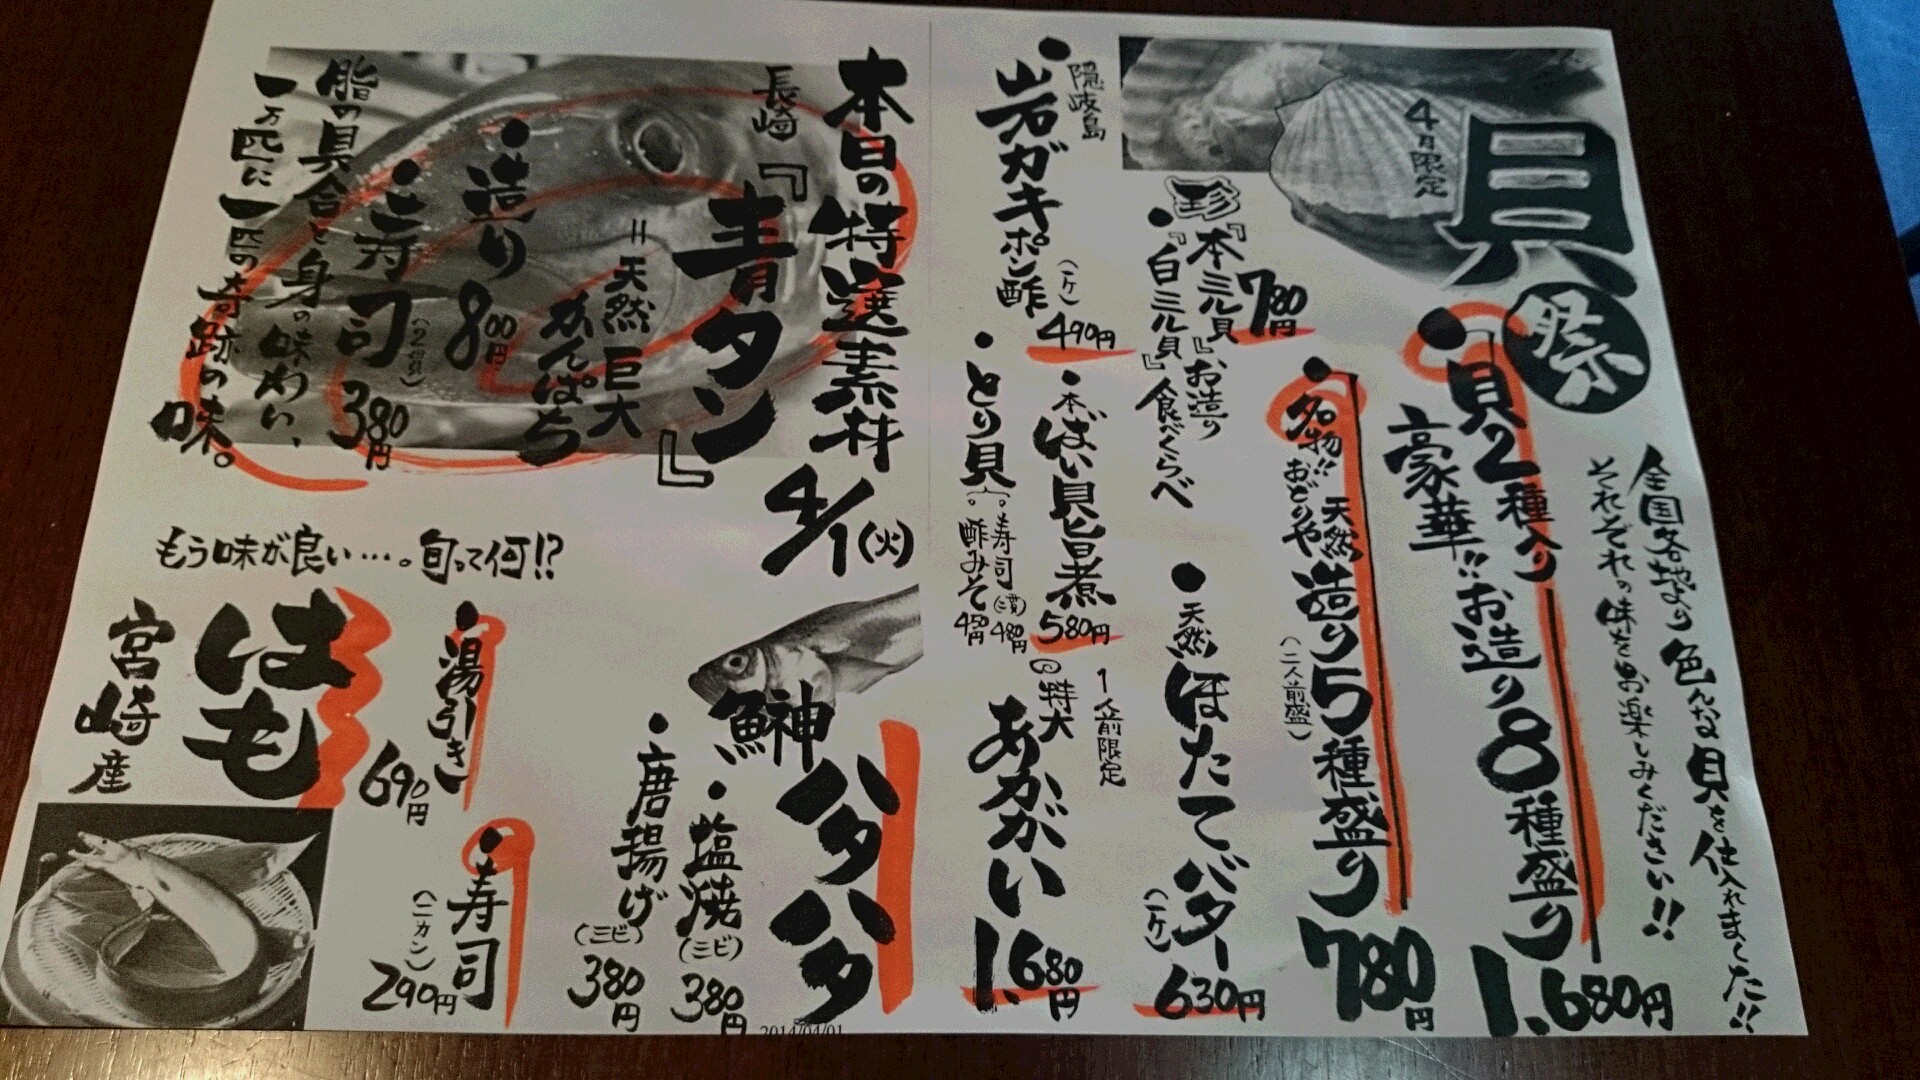 貝祭
4月限定
全国各地より色んな貝を仕入れました!!
それぞれの味をお楽しみください!!
・貝2種入り
豪華!!お造り8種盛り 1.680円
・名物!!天然
おどりや造り5種盛り 780円
(二人前盛)
珍
・『本ミル貝』お造り
『白ミル貝』食べくらべ
780円
・天然ほたてバター
(一ケ) 630円
隠岐島
・岩ガキポン酢
(一ケ) 490円
・本ばい貝旨煮 580円
・とり貝
寿司(二貫) 480円
酢みそ 450円
1人前限定
特大
あかがい 1.680円
本日の特選素材 4/1(火)
長崎
『青タン』
=天然巨大
かんぱち
・造り 800円
・寿司(2貫) 380円
脂の具合と身の味わい、
一万匹に一匹の奇跡の味。
鰰
ハタハタ
・塩焼(三ビ) 380円
・唐揚げ(三ビ) 380円
2014/04/01
もう味が良い…。旬って何!?
はも
宮崎産
・湯引き 690円
・寿司(二カン) 290円